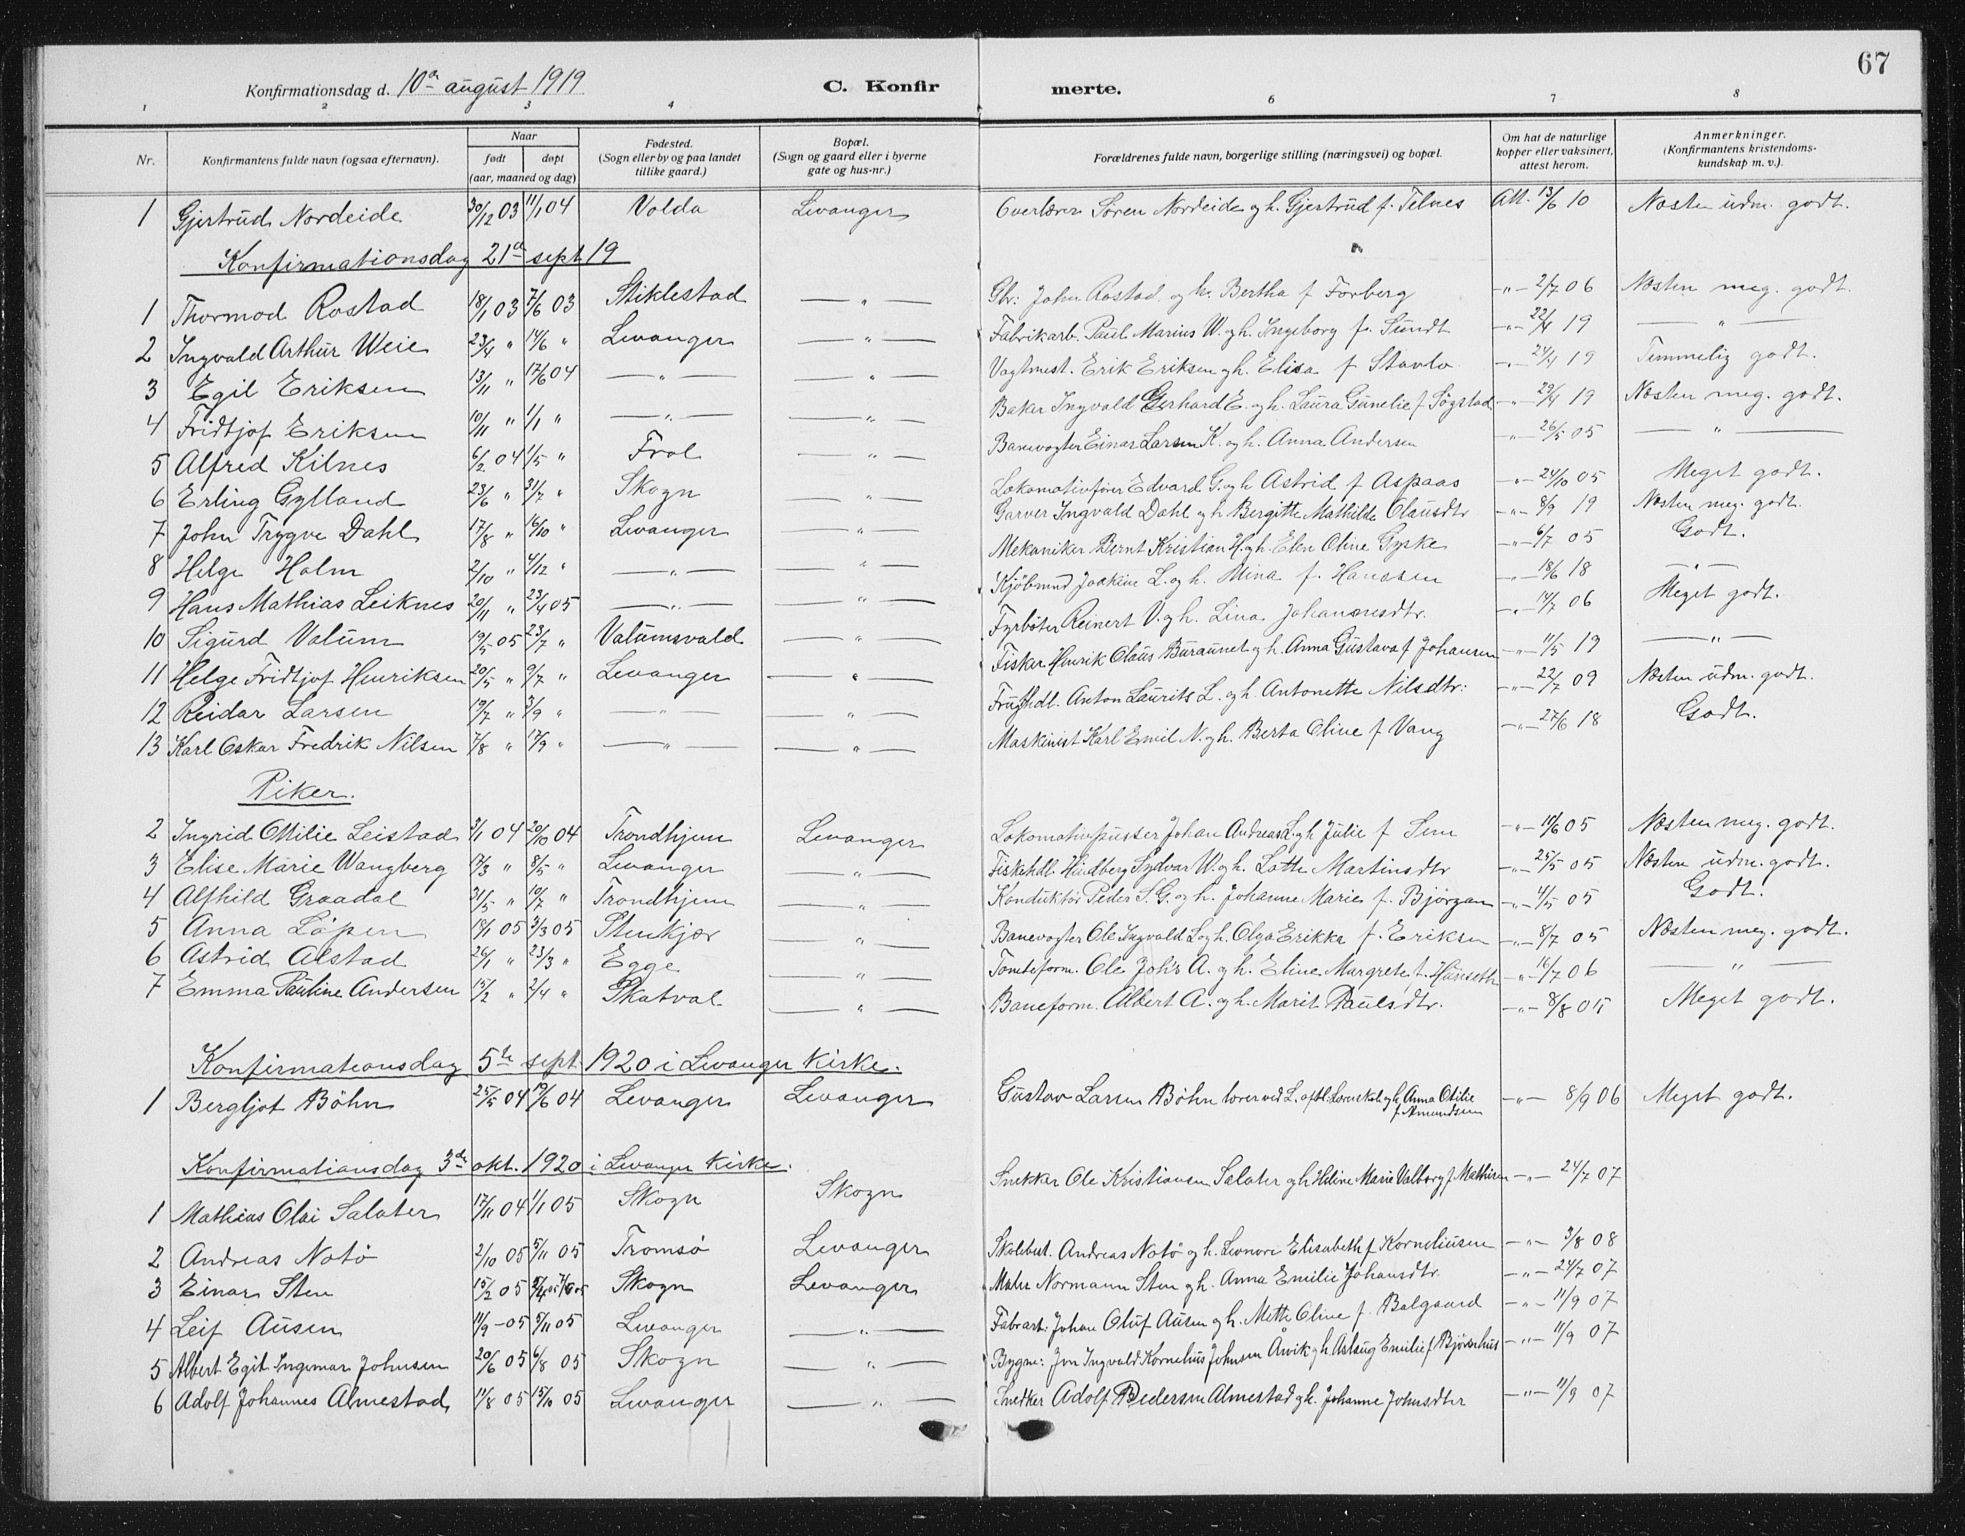 67
Konfirmationsdag d. 10de august 1919 C. Konfirmerte.
1 2 3 4 6 7 8
Nr. Konfirmantens fulde navn (ogsaa efternavn). Naar født døpt (aar, maaned og dag) Fødested. (Sogn eller by og paa landet tillike gaard.) Bopæl. (Sogn og gaard eller i byerne gate og hus-nr.) Forældrenes fulde navn, borgerlige stilling (næringsvei) og bopæl. Om hat de naturlige kopper eller vaksinert, attest herom. Anmerkninger. (Konfirmantens kristendoms-kundskap m. v.).
1 Gjertrud Nordeide 30/12 03 11/1 04 Volda Levanger Overlærer Søren Nordeide og h. Gjertrud f. Telnes Att. 13/6 10 Næsten udm. godt.
Konfirmationsdag 21de sept 19
1 Thormod Rostad 18/1 03 7/6 03 Stiklestad —"— Gbr: John Rostad og h. Bertha f Forberg —"— 2/7 06 Næsten meg. godt.
2 Ingvald Arthur Weie 23/4 " 14/6 " Levanger —"— Fabrikarb. Paul Marius W. og h. Ingeborg f. Sundt —"— 22/4 19 —"—
3 Egil Eriksen 13/11 " 17/6 04 —"— —"— Vagtmest. Erik Eriksen og h. Elisa f Stavlo —"— 24/4 19 Temmelig godt.
4 Fridtjof Eriksen 10/11 " 1/1 " —"— —"— Baker Ingvald Gerhard E. og h. Laura Gunelie f. Søgstad —"— 29/4 19 Næsten meg. godt.
5 Alfred Kilnes 6/2 04 1/5 " Frol —"— Banevogter Einar Larsen K. og h. Anna Andersen —"— 26/5 05 —"—
6 Erling Gylland 23/6 " 31/7 " Skogn —"— Lokomotivfører Edvard G. og h. Astrid f Aspaas —"— 24/10 05 Meget godt.
7 John Trygve Dahl 17/8 " 16/10 " Levanger —"— Garver Ingvald Dahl og h Bergitte Mathilde Olausdtr —"— 8/9 19 Næsten meg. godt.
8 Helge Holm 2/10 " 4/12 " —"— —"— Mekaniker Bernt Kristian H. og h. Elen Oline Gyske —"— 6/7 05 Godt.
9 Hans Mathias Leiknes 20/11 " 23/4 05 —"— —"— Kjøbmnd Joakim L. og h. Mina f. Hanssen —"— 18/6 18 —"—
10 Sigurd Valum 19/5 05 23/7 " Valumsvald —"— Fyrbøter Reinert V. og h. Lina Johannesdtr. —"— 14/7 06 Meget godt.
11 Helge Fridtjof Henriksen 20/5 " 9/7 " Levanger —"— Fisker Henrik Olaus Buraunet og h. Anna Gustava f Johansen —"— 11/5 19 —"—
12 Reidar Larsen 19/7 " 3/9 " —"— —"— Frugthdl. Anton Laurits L. og h. Antonette Nilsdtr: —"— 22/7 09 Næsten udm. godt.
13 Karl Oskar Fredrik Nilsen 7/8 " 17/9 " —"— —"— Maskinist Karl Emil N. og h. Berta Oline f Vang —"— 27/6 18 Godt.
Piker.
2 Ingrid Ottilie Leistad 3/1 04 20/10 04 Trondhjem Levanger Lokomotivpusser Johan Andreas L. og h Julie f Sem —"— 10/6 05 Næsten meg. godt.
3 Elise Marie Wangberg 17/3 " 8/5 " Levanger —"— Fiskehdl. Hindberg Sydvar W. og h. Lotte Martinsdtr —"— 25/5 05 Næsten udm. godt.
4 Alfhild Graadal 31/5 " 10/7 " Trondhjem —"— Konduktør Peder S. G. og h. Johanne Marie f. Bjørgan —"— 4/5 05 Godt.
5 Anna Løpen 19/1 05 3/3 05 Stenkjær —"— Banevogter Ole Ingvald L. og h. Olga Erikka f. Eriksen —"— 8/7 05 Næsten meg. godt.
6 Astrid Alstad 26/1 " 23/3 " Egge —"— Tomteform. Ole Johs A. og h. Eline Margrete f. Hanseth —"— 16/7 06 —"—
7 Emma Pauline Andersen 15/2 " 2/4 " Skatval —"— Baneform. Albert A. og h. Marit Paulsdtr. —"— 8/8 05 Meget godt.
Konfirmationsdag 5te sept. 1920 i Levanger kirke.
1 Bergljot Bøhn 25/5 04 19/6 04 Levanger Levanger Gustav Larsen Bøhn lærer ved L. og h. Anna Otilie f. Amundsen —"— 8/9 06 Meget godt.
Konfirmationsdag 3de okt. 1920 i Levanger kirke.
1 Mathias Olai Salater 17/11 04 1/1 05 Skogn Skogn Snekker Ole Kristiansen Salater og h Heline Marie Valborg f. Mathisen —"— 24/7 07
2 Andreas Notø 2/10 05 5/11 05 Tromsø Levanger Skolebest. Andreas Notø og h. Leonore Elisabeth f Korneliussen —"— 3/8 08
3 Einar Sten 15/2 05 Skogn Levanger Maler Normann Sten og h. Anna Emilie Johansdtr. —"— 24/7 07
4 Leif Ausen 11/9 – 05 5/11 05 Levanger —"— Fabrarb: Johan Oluf Ausen og h. Mette Oline f. Balgaard —"— 11/9 07
5 Albert Egil Ingemar Johnsen 20/6 05 6/8 05 Skogn —"— Bygm: Jon Ingvald Kornelius Johnsen Åsvik og h. Aslaug Emilie f Bjørnhus —"— 11/9 07
6 Adolf Johannes Almestad 11/8 05 15/10 05 Levanger —"— Snedker Adolf Pedersen Almestad og h. Johanne Johnsdtr —"— 11/9 07